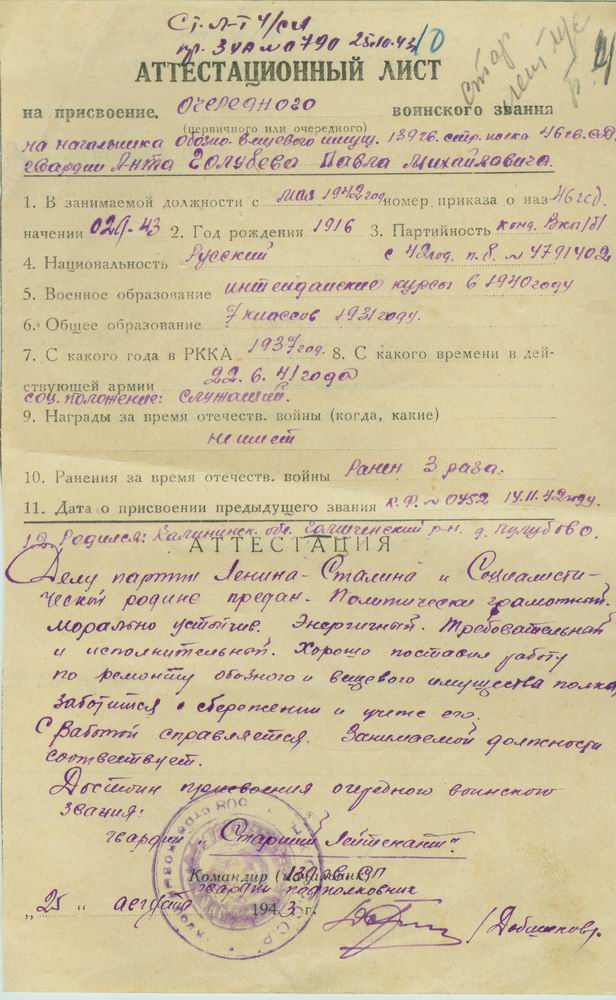 Ст. Л-т
пр. ЗУА № 0790 25.10.43 10
стар
лейт
АТТЕСТАЦИОННЫЙ ЛИСТ
на присвоение очередного воинского звания
(первичного или очередного)
на начальника обозно-вещевого имущ. 139 гв. стр. полка 46 гв. с.д.
гвардии Голубева Павла Михайловича.
1. В занимаемой должности с мая 1942 год номер приказа о наз-
начении 029-43 2. Год рождения 1916 3. Партийность канд. Вкп/б/
4. Национальность Русский с 42 год. п.б. № 4791402
5. Военное образование курсы в 1940 году
6. Общее образование 7 классов 1931 году.
7. С какого года в РККА 1937 год. 8. С какого времени в дей-
ствующей армии 22.6.41 года
соц. положение: служащий.
9. Награды за время отечеств. войны (когда, какие)
не имеет
10. Ранения за время отечеств. войны Ранен 3 раза.
11. Дата о присвоении предыдущего звания № 0452 14.11.42 году.
12. Родился: Калининск. обл. р-н. д.
АТТЕСТАЦИЯ
Делу партии Ленина-Сталина и Социалисти-
ческой родине предан. Политически грамотный.
Морально устойчив. Энергичный. Требовательный
и исполнительный. Хорошо поставил работу
по ремонту обозного и вещевого имущества полка,
заботится о сбережении и учете его.
С работой справляется. Занимаемой должности
соотвествует.
Достоин присвоения очередного воинского
звания:
гвардии „Старший Лейтенант".
Командир (начальник) 139 гв. СП
гвардии подполковник
„25 " августа 1943 г.